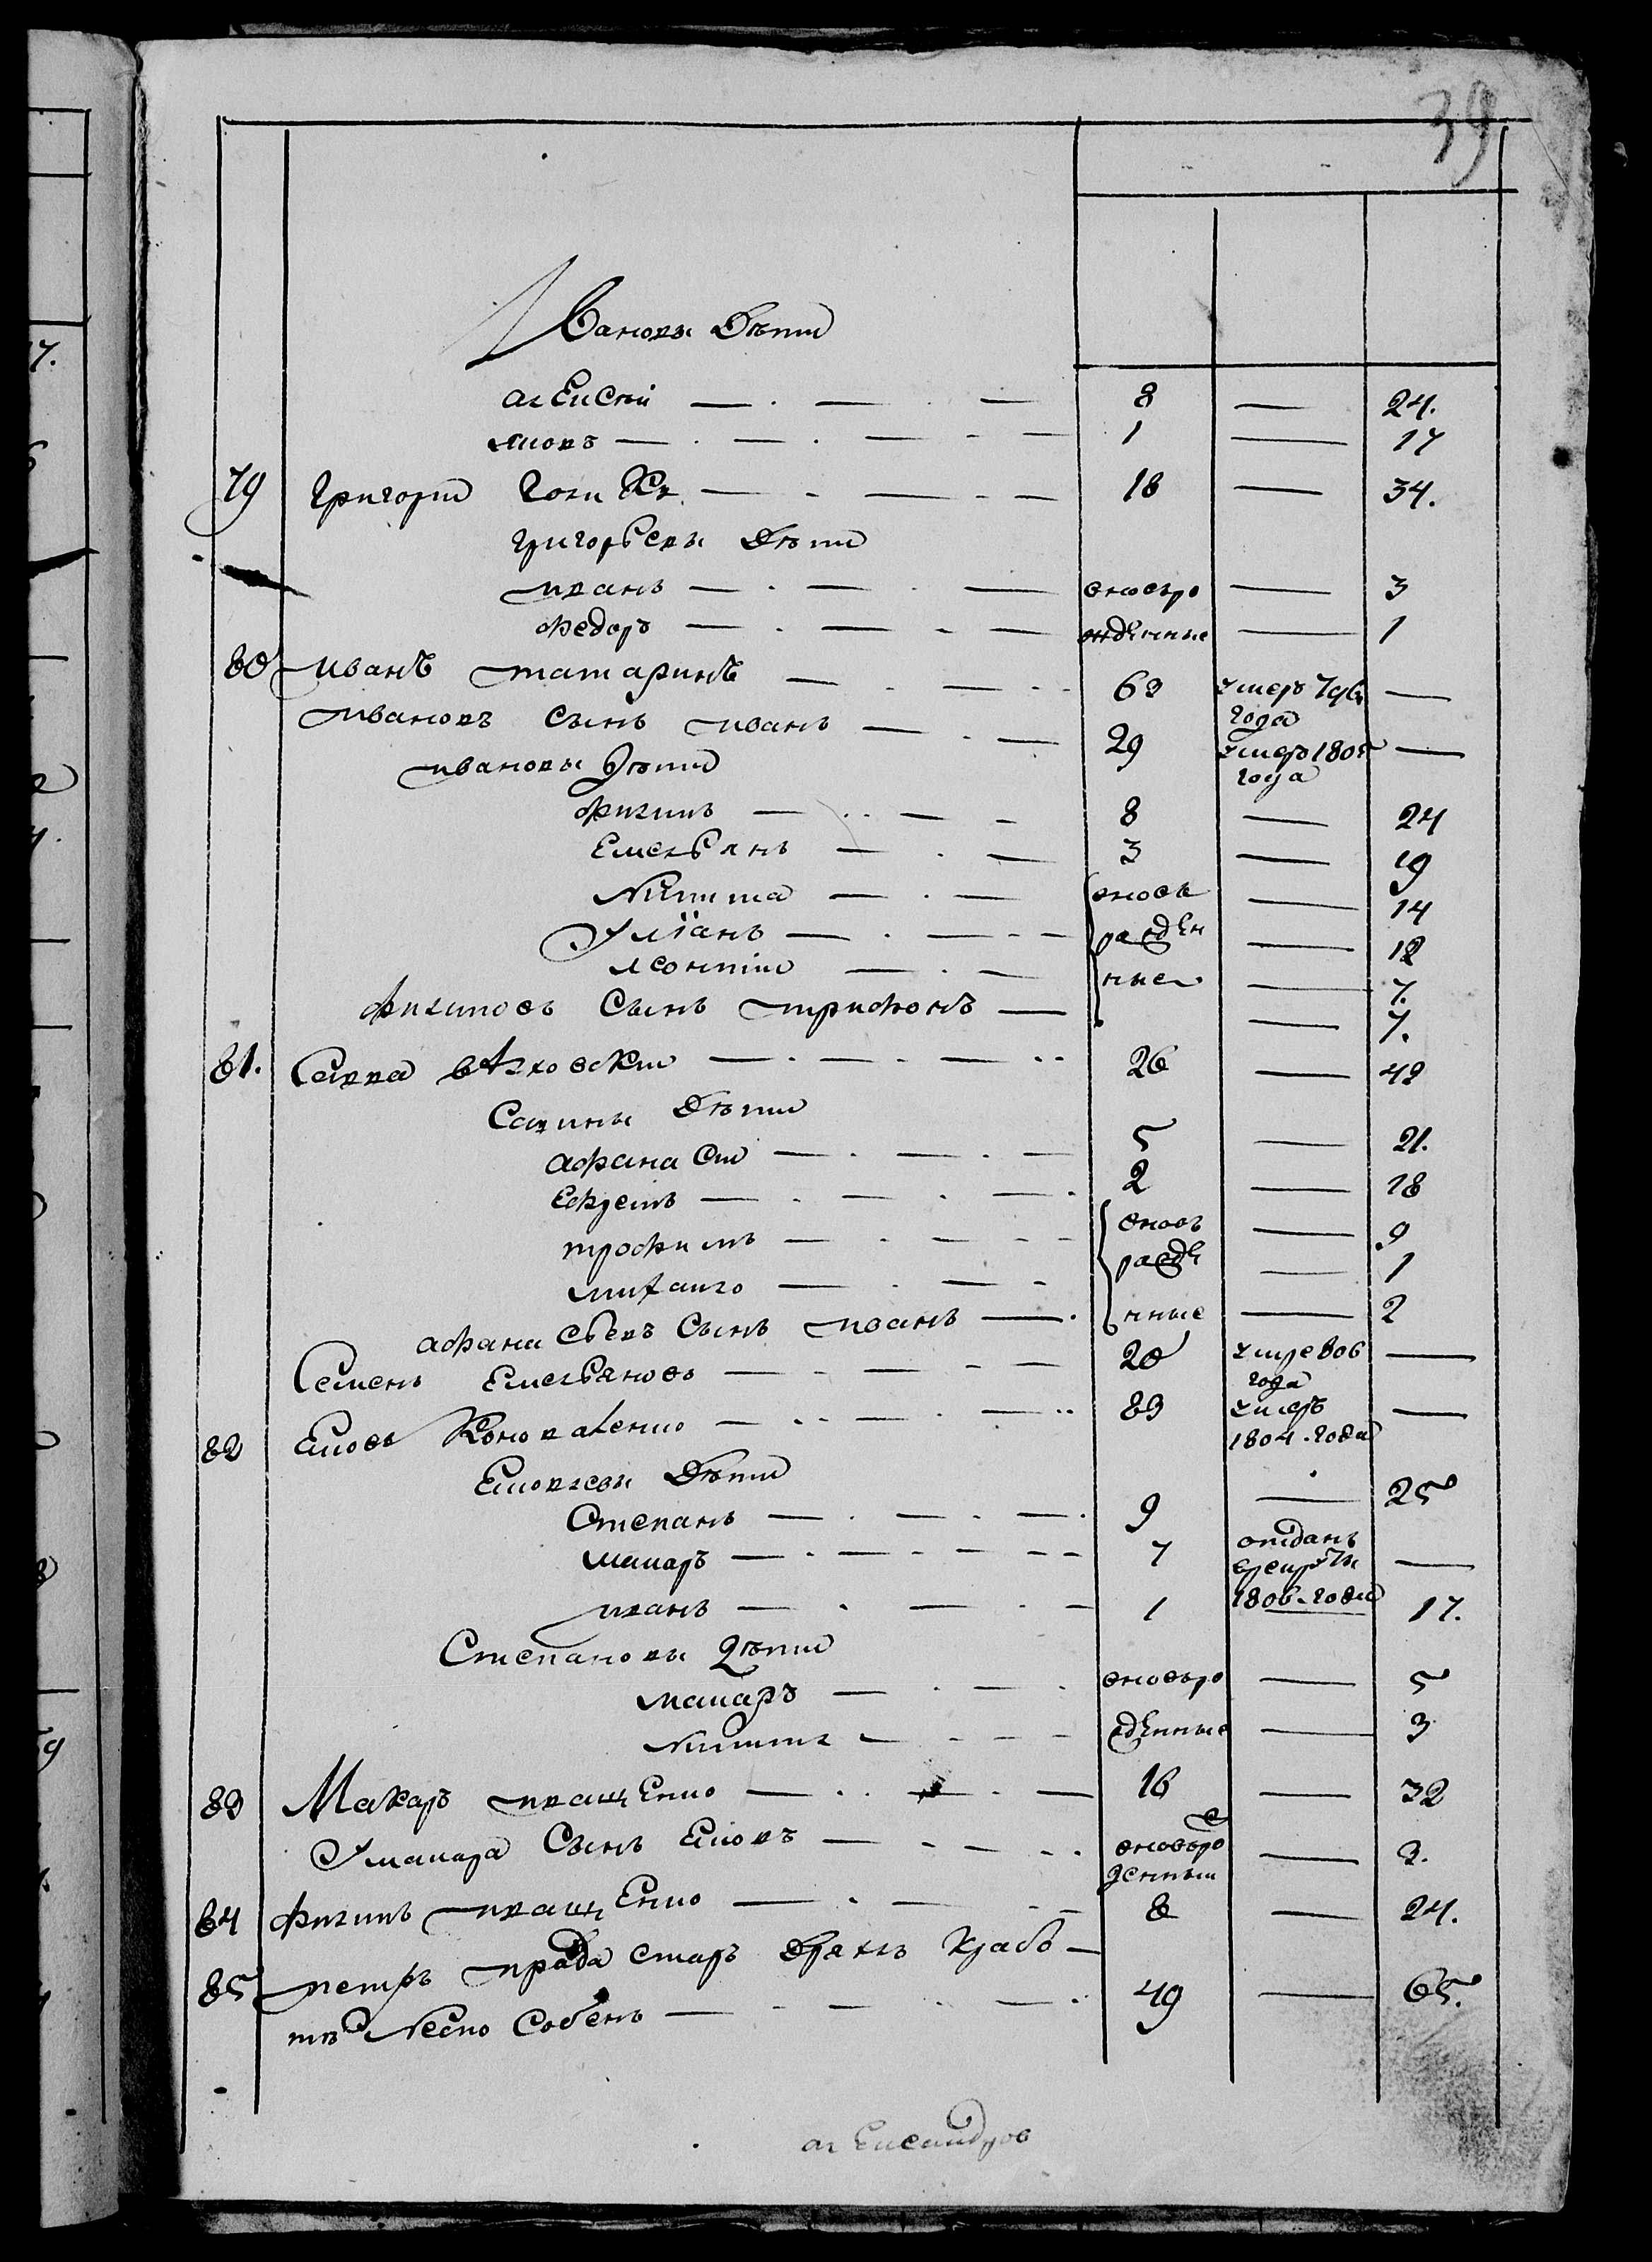 39
Ивановы дѣти
алексѣй 8 — 24.
яковъ 1 — 17
79 григорий голик 18 — 34.
григорьевы дѣти
иванъ вновьро — 3
федоръ жденные — 1
80 иванъ татаринъ 63 умеръ 796 —
года
ивановъ сынъ иванъ 29 умеръ 1805 —
года
ивановы дѣти
филипъ 8 — 24
емельянъ 3 — 19
никита вновь — 14
улїанъ рожден — 12
леонтии ные — 7.
филиповъ сынъ трифонъ — 7.
81. Савва 26 — 42
Савины дѣти
афанасии 5 — 21.
ефремъ 2 — 18
трофимъ вновь — 9
михаило рожде — 1
афанасьевъ сынъ иванъ нные — 2
Семенъ емельяновъ 20 умре 806 —
года
82 яковъ коноваленко 83 умеръ —
1804. года
яковлевы дѣти
Степанъ 9 — 25
макаръ 7 отданъ
врекруты —
иванъ 1 1806. года 17.
Степановы дѣти
макаръ вновьро — 5
никита жденные — 3
83 Макаръ иващенко 16 — 32
Умакара сынъ яковъ вновьро — 2.
жденныи
84 филипъ иващенко 8 — 24.
85 петръ правда старъ дряхлъ крабо
те неспособенъ 49 — 65.
александров